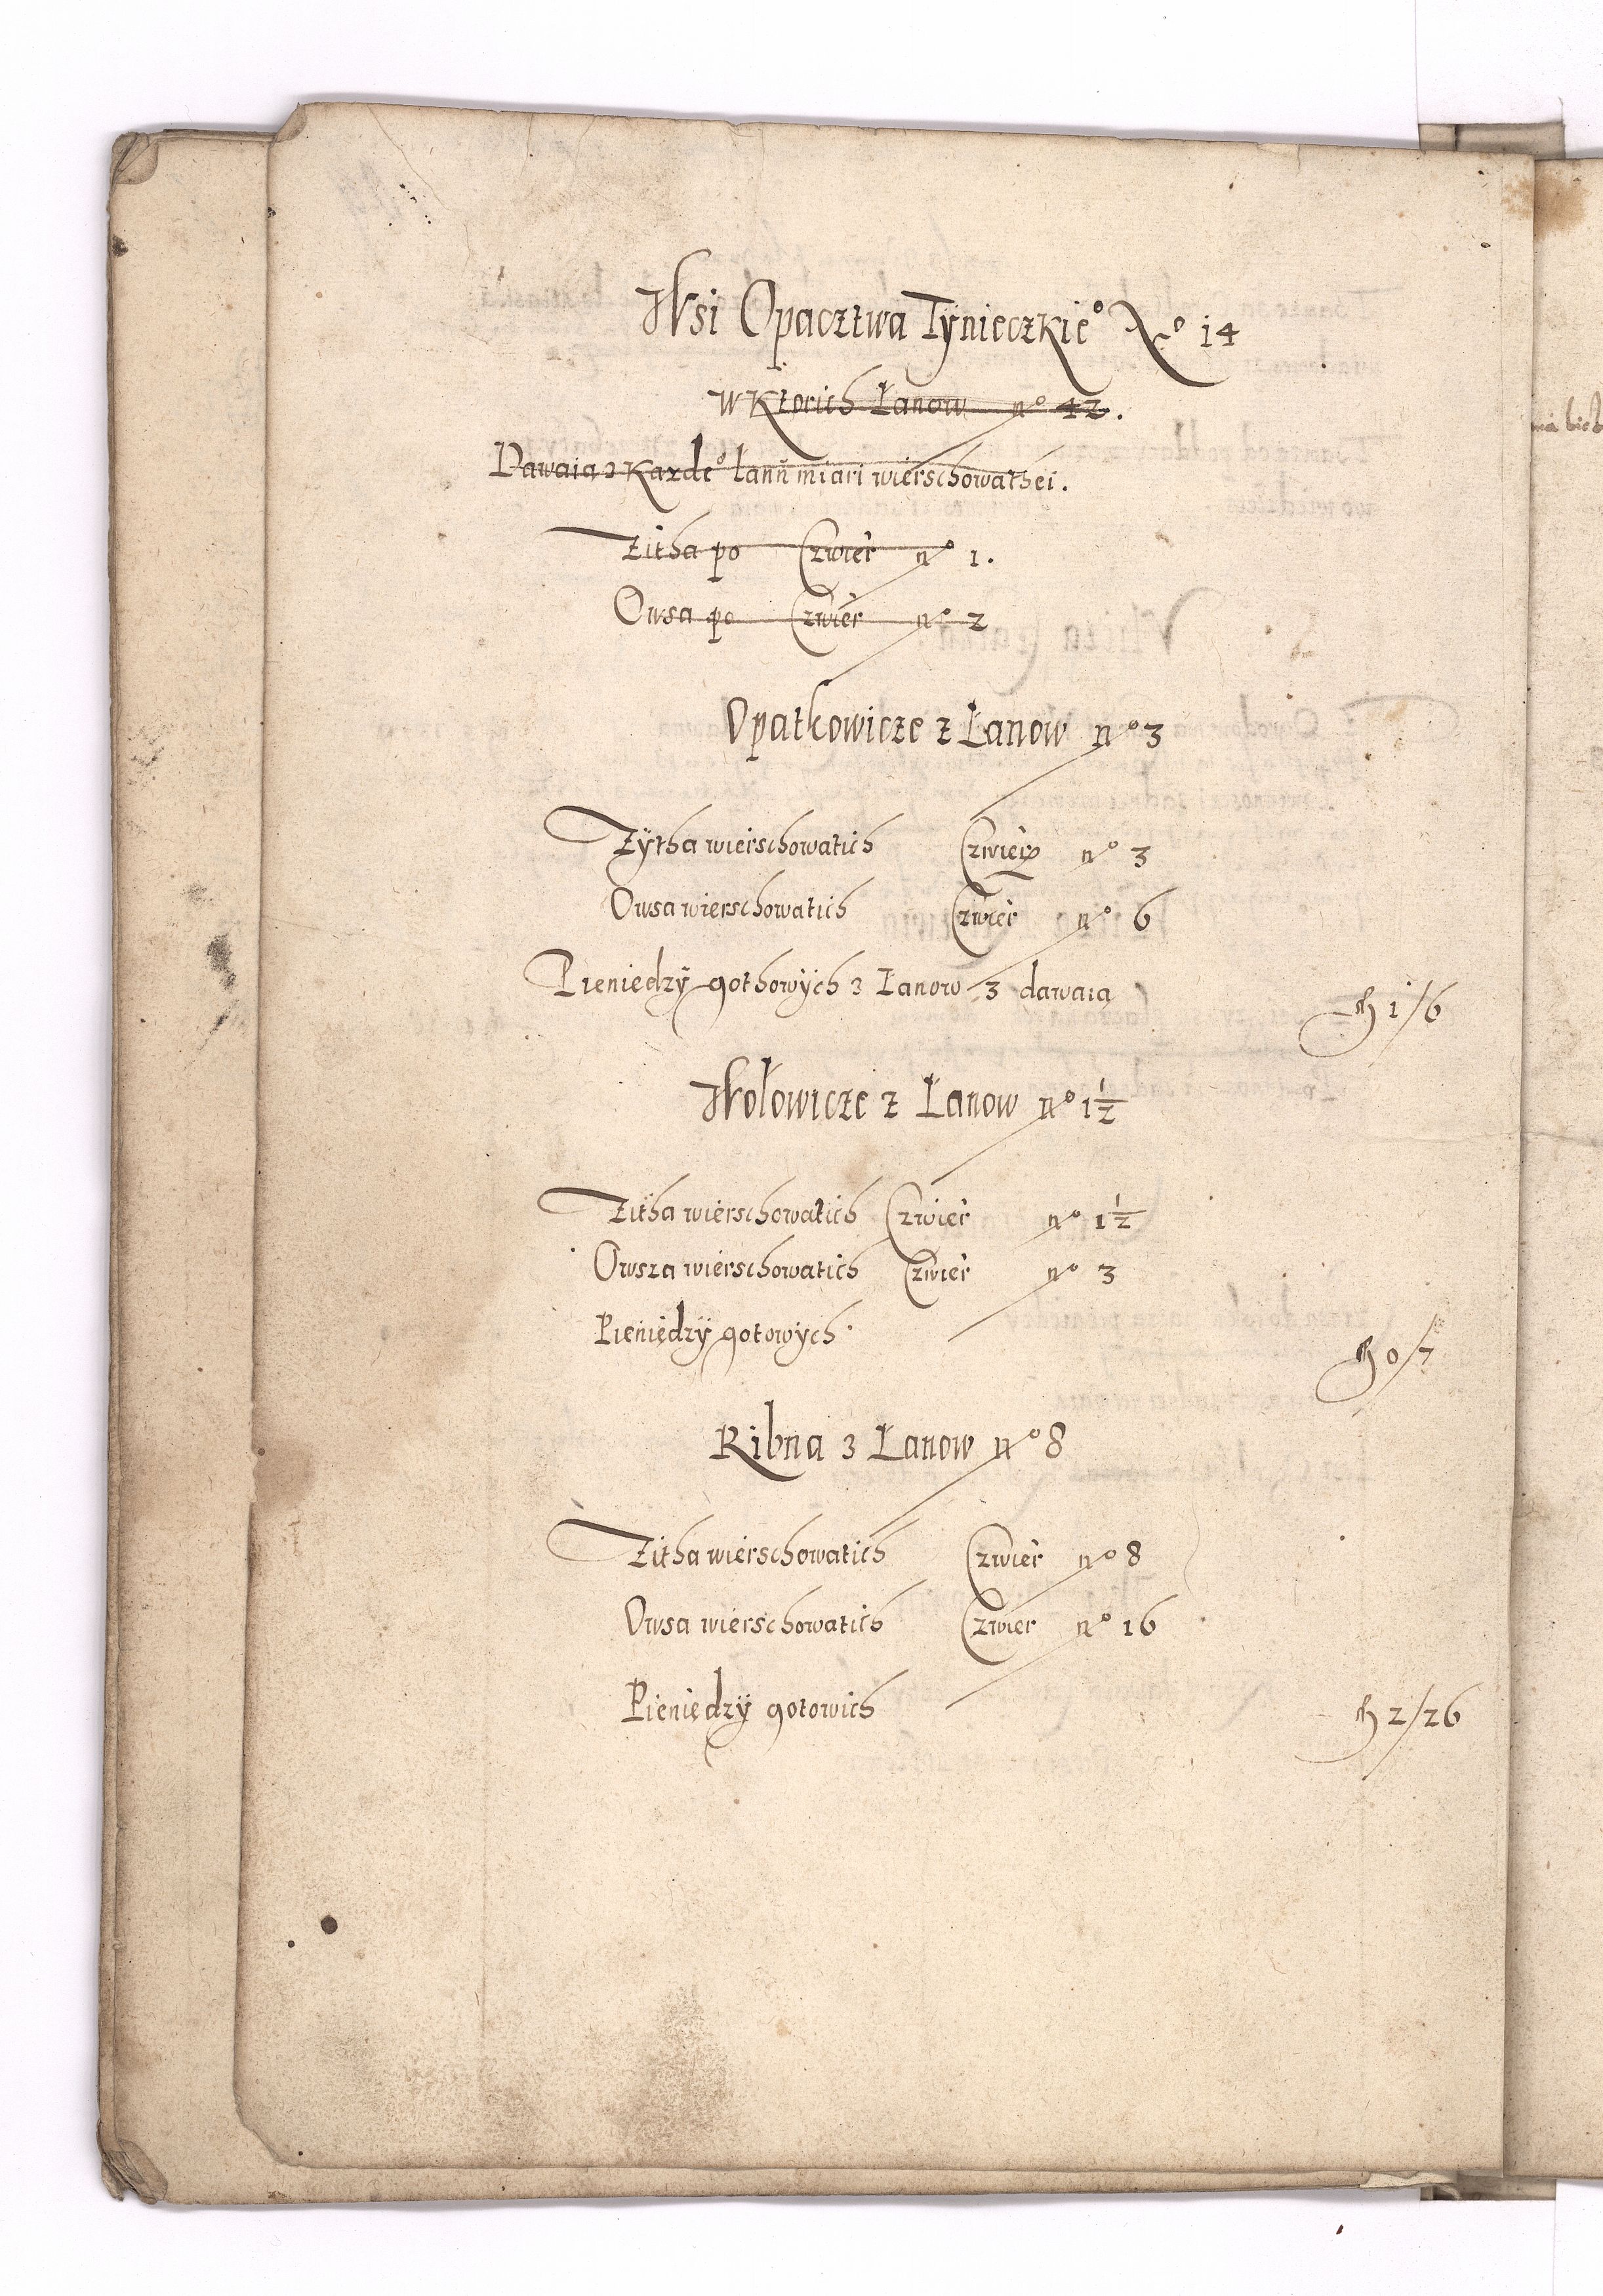 Wsi Opacztwa Tÿnieczkie° N° 14
W Ktorich Łanow n° 42.
Dawaia z Kazde° łanu miari wierschowathei.
Zitha po Czwier n° 1.
Owsa po Czwier n° 2
Opatkowicze z Łanow n° 3
Zÿtha wierschowatich Czwier n° 3
Owsa wierschowatich Czwier n° 6
Pieniędzÿ gothowÿch z Łanow 3 dawaią
1/6
Wołowicze z Łanow n° 1 1/2
Zitha wierschowatich Czwier n° 1 1/2
Owsza wierschowatich Czwier n° 3
Pieniędzÿ gotowÿch
0/7
Ribna z Łanow n° 8
Zitha wierschowatich Czwier n° 8
Owsa wierschowatich Czwier n° 16
Pieniędzÿ gotowich
2/26